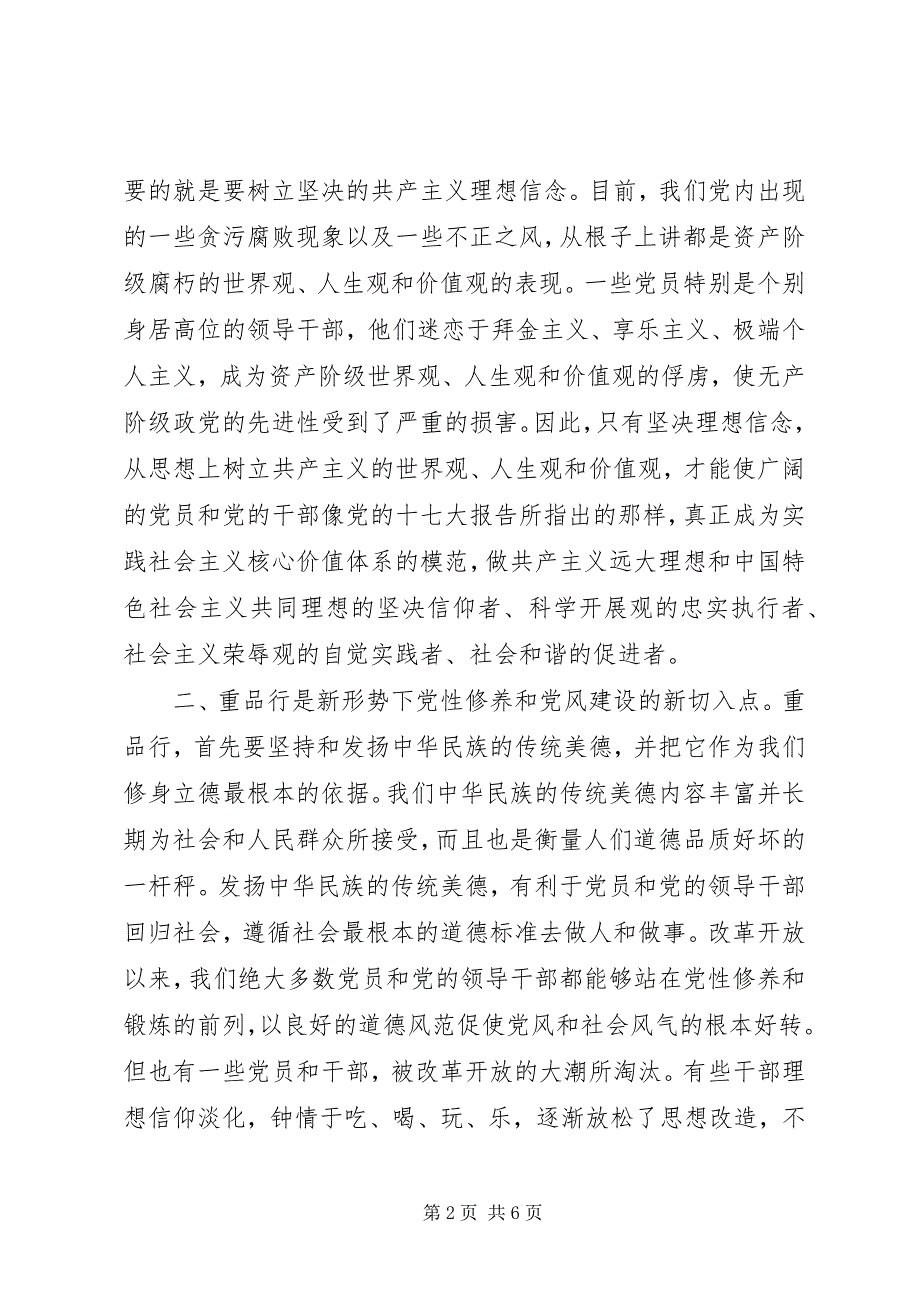 要的就是要树立坚决的共产主义理想信念。目前，我们党内出现
的一些贪污腐败现象以及一些不正之风，从根子上讲都是资产阶
级腐朽的世界观、人生观和价值观的表现。一些党员特别是个别
身居高位的领导干部，他们迷恋于拜金主义、享乐主义、极端个
人主义，成为资产阶级世界观、人生观和价值观的俘虏，使无产
阶级政党的先进性受到了严重的损害。因此，只有坚决理想信念，
从思想上树立共产主义的世界观、人生观和价值观，才能使广阔
的党员和党的干部像党的十七大报告所指出的那样，真正成为实
践社会主义核心价值体系的模范，做共产主义远大理想和中国特
色社会主义共同理想的坚决信仰者、科学开展观的忠实执行者、
社会主义荣辱观的自觉实践者、社会和谐的促进者。
二、重品行是新形势下党性修养和党风建设的新切入点。重
品行，首先要坚持和发扬中华民族的传统美德，并把它作为我们
修身立德最根本的依据。我们中华民族的传统美德内容丰富并长
期为社会和人民群众所接受，而且也是衡量人们道德品质好坏的
一杆秤。发扬中华民族的传统美德，有利于党员和党的领导干部
回归社会，遵循社会最根本的道德标准去做人和做事。改革开放
以来，我们绝大多数党员和党的领导干部都能够站在党性修养和
锻炼的前列，以良好的道德风范促使党风和社会风气的根本好转。
但也有一些党员和干部，被改革开放的大潮所淘汰。有些干部理
想信仰淡化，钟情于吃、喝、玩、乐，逐渐放松了思想改造，不
第 2 页 共 6 页